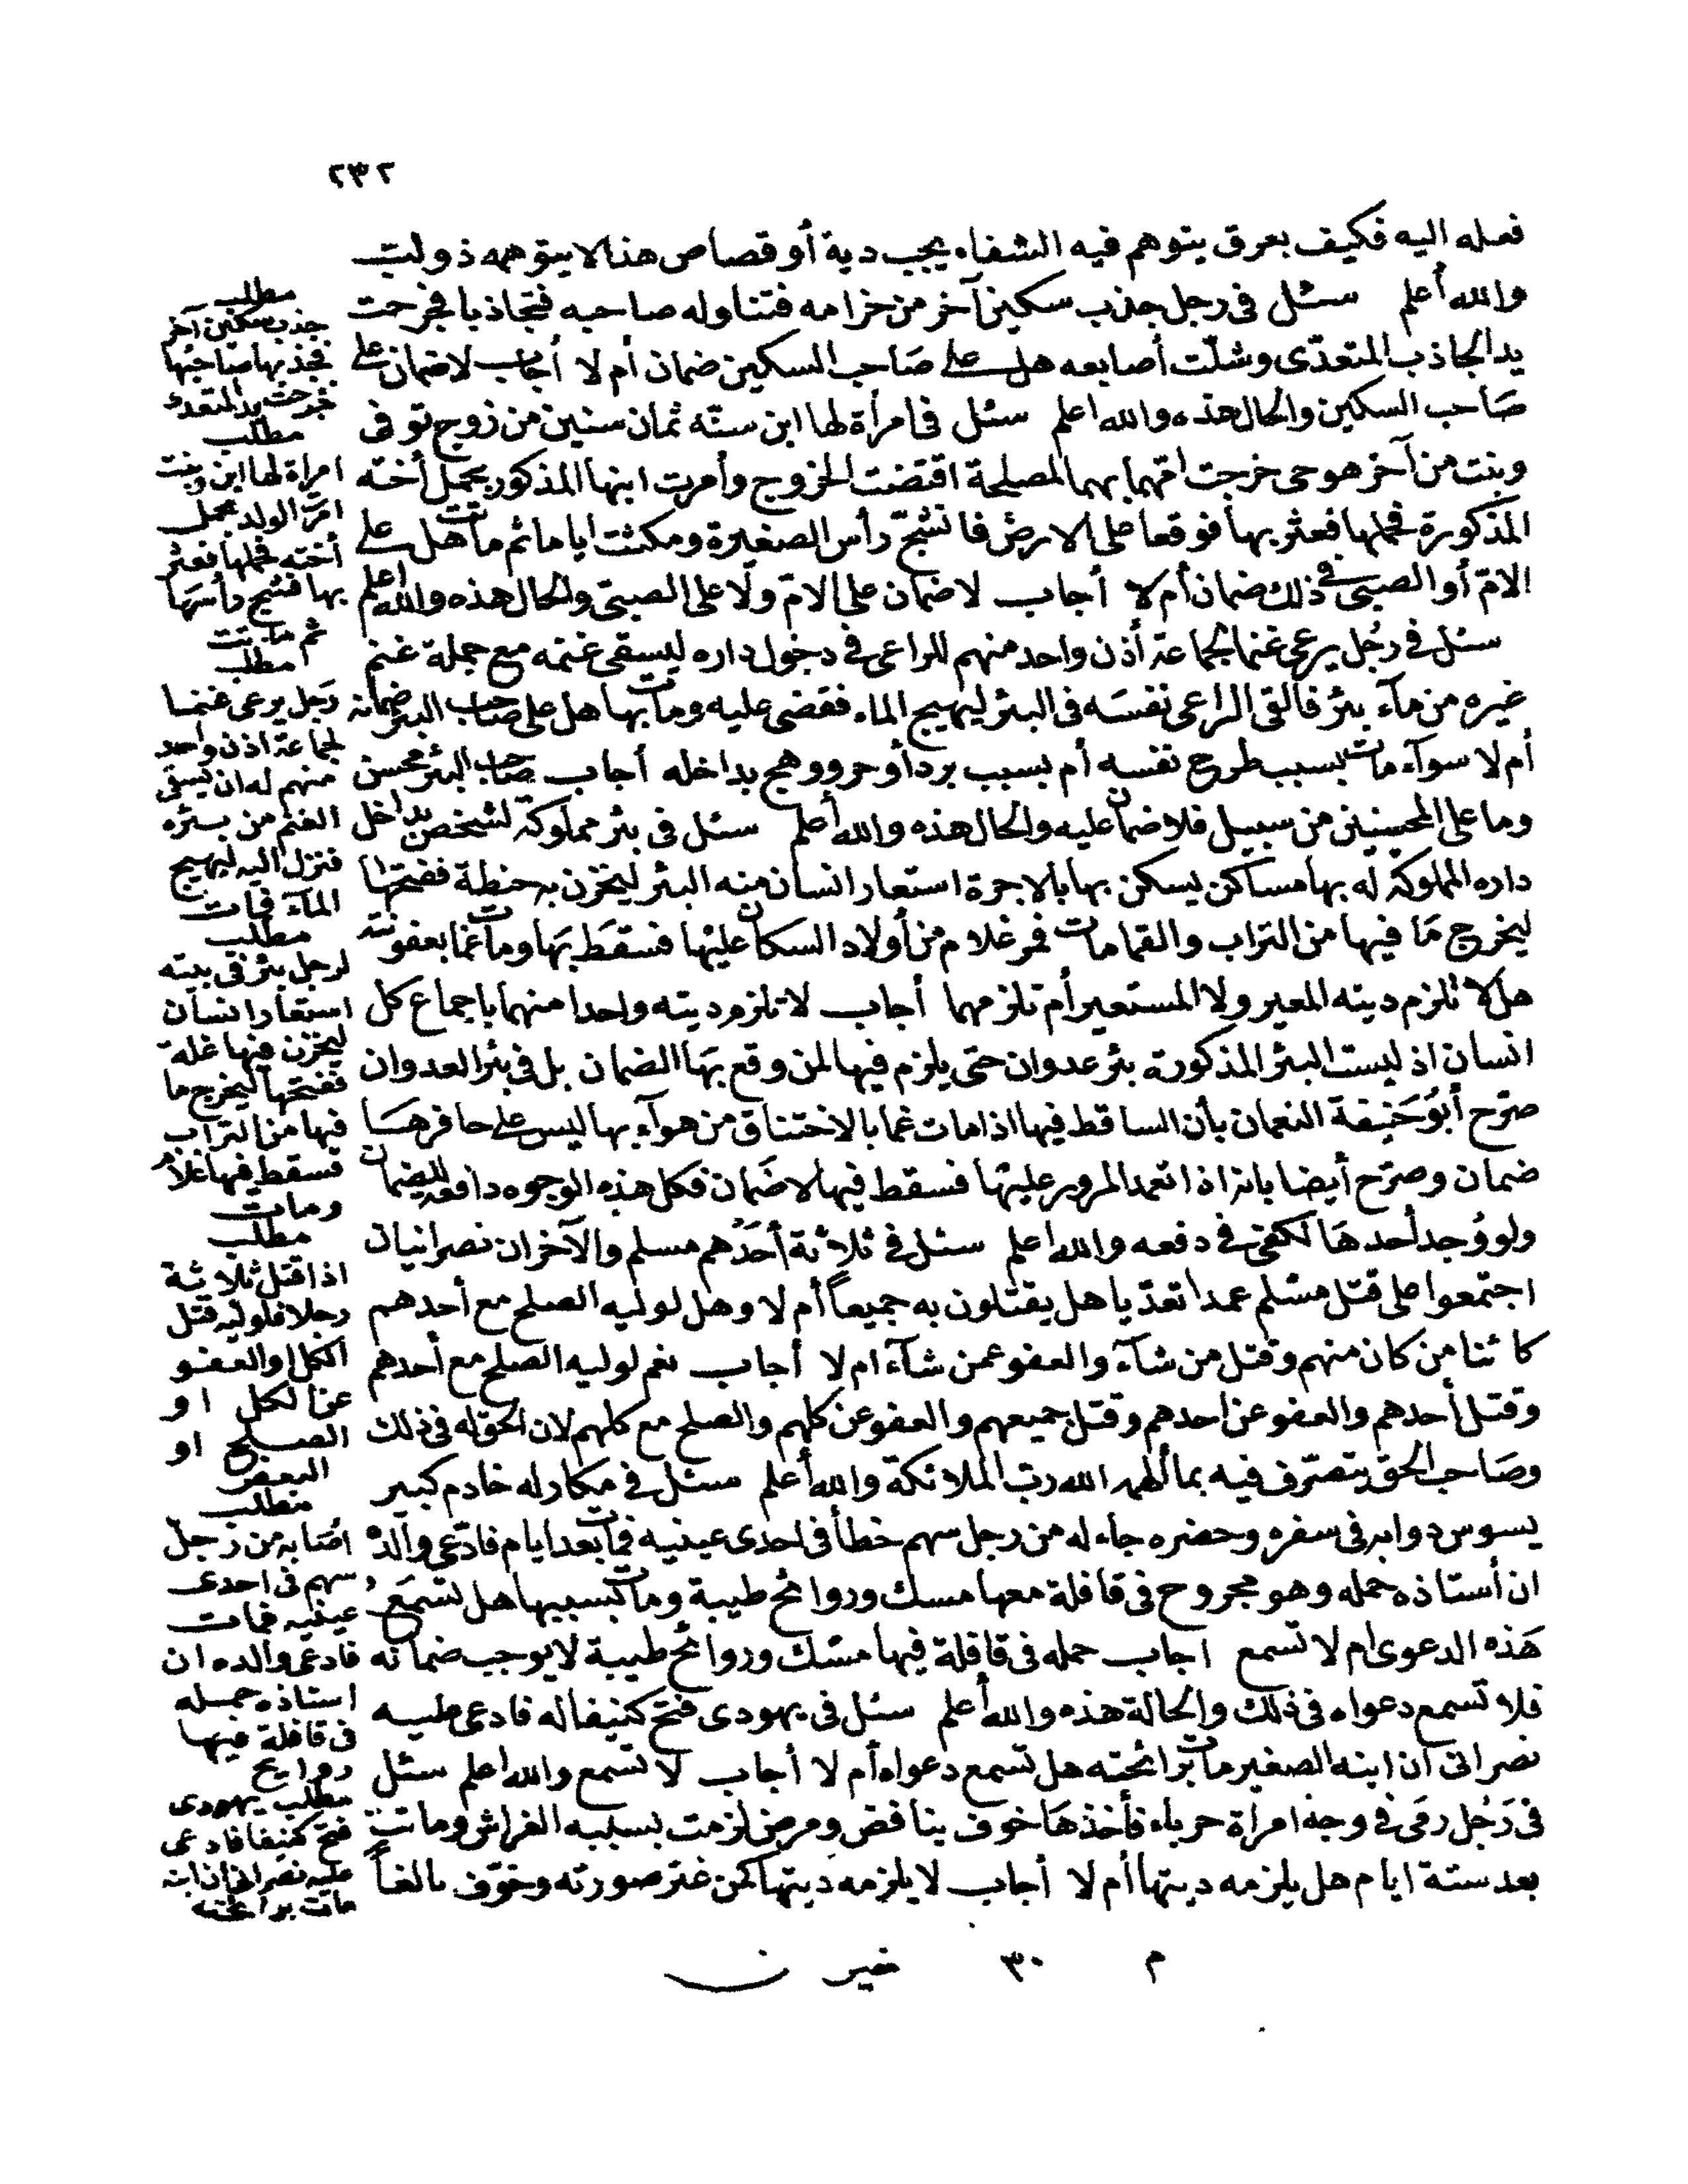 ٢٣٢
فعله اليه فكيف بعرق يتوهم فيه الشفاء يجب دية أو قصاص هذا لا يتوهمه ذو لب
والله أعلم سئل فى رجل جذب سكين آخر من حزامه فتناوله صاحبه فتجاذبا فجرحت
يد الجاذب المتعدّى وشلّت أصابعه هل على صَاحب السكين ضمان أم لا أجاب لا ضمان على
صَاحب السكين والحال هذه والله اعلم سئل فى امرأة لها ابن سنّه ثمان سنين من زوج توفى
وبنت من آخر هو حى خرجت امّهما بهما لمصلحة اقتضت الخروج وأمرت ابنها المذكور بحمل أخته
المذكورة فحملها فعثر بها فوقعا على الارض فانشجّ رأس الصغيرة ومكثت أياما ثم ماتت هل على
الامّ أو الصبى فى ذلك ضمان أم لا أجاب لا ضمان على الامّ ولا على الصبىّ والحال هذه والله اعلم
سئل فى رجُل يرعى غنما لجماعة أذن واحد منهم للراعى فى دخول داره ليسقى غنمه مع جملة غنم
غيره من مآء بئر فالقى الراعى نفسَه فى البئر ليهيج الماء فقضى عليه ومات بها هل على صاحب البئر ضمانه
أم لا سوآء مات بسبب طرح نفسه أم بسبب برد أو حر ووهج بداخله أجاب صاحب البئر محسن
وما على المحسنين من سبيل فلا ضمان عليه والحال هذه والله أعلم سئل فى بئر مملوكة لشخص بداخل
داره المملوكة له بها مساكن يسكن بها بالاجرة استعار انسان منه البئر ليخزن به حنطة ففتحها
ليخرج مَا فيها من التراب والقمامات فمر غلام من أولاد السكان عليها فسقَط بهَا ومات غما بعفونته
هل لا تلزم ديته المعير ولا المستعير أم تلزمهما أجاب لا تلزم ديته واحدا منهما باجماع كل
انسان اذ ليست البئر المذكورة بئر عدوان حتى يلزم فيها لمن وقع بهَا الضمان بل فى بئر العدوان
صرّح أبو حَنيفة النعمان بأن الساقط فيها اذا مات غما بالاختناق من هوآء بها ليس على حافرهَا
ضمان وصرّح أيضا بانه اذا تعمد المرور عليهَا فسقط فيها لا ضَمان فكل هذه الوجوه دافعة للضمان
ولو وُجد أحدهَا لكفى فى دفعه والله اعلم سئل فى ثلاثة أحَدهم مسلم والآخران نصرانيان
اجتمعوا على قتل مسْلم عمدا تعدّيا هل يقتلون به جميعاً أم لا وهل لوليه الصلح مع أحدهم
كائنا من كان منهم وقتل من شآء والعفو عمن شآء ام لا أجاب نعم لوليه الصلح مع أحدهم
وقتل أحدهم والعفو عن احدهم وقتل جميعهم والعفو عن كلهم والصلح مع كلهم لان الحق له فى ذلك
وصَاحب الحق يتصرّف فيه بما ألهمه الله ربّ الملائكة والله أعلم سئل فى مكار له خادم كبير
يسوس دوابه فى سفره وحضره جاء له من رجل سهم خطأ فى احدى عينيه فمات بعد ايام فادّعى والده
ان أستاذه حمله وهو مجروح فى قافلة معها مسك وروائح طيبة ومات بسببها هل تسْمَع
هَذه الدعوى ام لا تسمع اجاب حمله فى قافلة فيها مسْك وروائح طيبة لا يوجب ضمانه
فلا تسمع دعواه فى ذلك والحالة هذه والله أعلم سئل فى يهودى فتح كنيفا له فادعى عليه
نصرانى ان ابنه الصغير مات برائحته هل تسمع دعواه أم لا أجاب لا تسمع والله اعلم سئل
فى رَجُل رمَى فى وجه امرأة حرباء فأخذهَا خوف بنافض ومرض لزمت بسببه الفراش وماتت
بعد ستة ايام هل يلزمه ديتها أم لا أجاب لا يلزمه ديتها كمن غيّر صورته وخوّف بالغاً
مطلب
جذب سكين آخر
فجذبها صاحبُها
فجرحت يد المتعدى
مطلب
امراة لها ابن وبنت
امرت الولد بحمل
أخته فحملها فعثر
بها فشج رأسَهَا
ثم ماتت
مطلب
رَجل يرعى غنمًا
لجماعة اذن واحد
منهم له ان يسقى
الغنم من بئره
فنزل اليه ليهيج
المآء فمات
مطلب
لرجل بئر فى بيته
استعار انسان
ليخزن فيها غلة
ففتحها ليخرج ما
فيها من التراب
فسقط فيها غلام
ومات
مطلب
اذا قتل ثلاثة
رجلا فلوليه قتل
الكل او العفو
عن الكل او
الصلح او
البعض
مطلب
اصَابه من رَجل
سهم فى احدى
عينيه فمات
فادعى والده ان
استاذه حمله
فى قافلة فيها
روايح
مطلب يهودى
فتح كنيفا فادعى
عليه نصرانى ان ابنه
مات برائحته
م ٣٠ خير ن